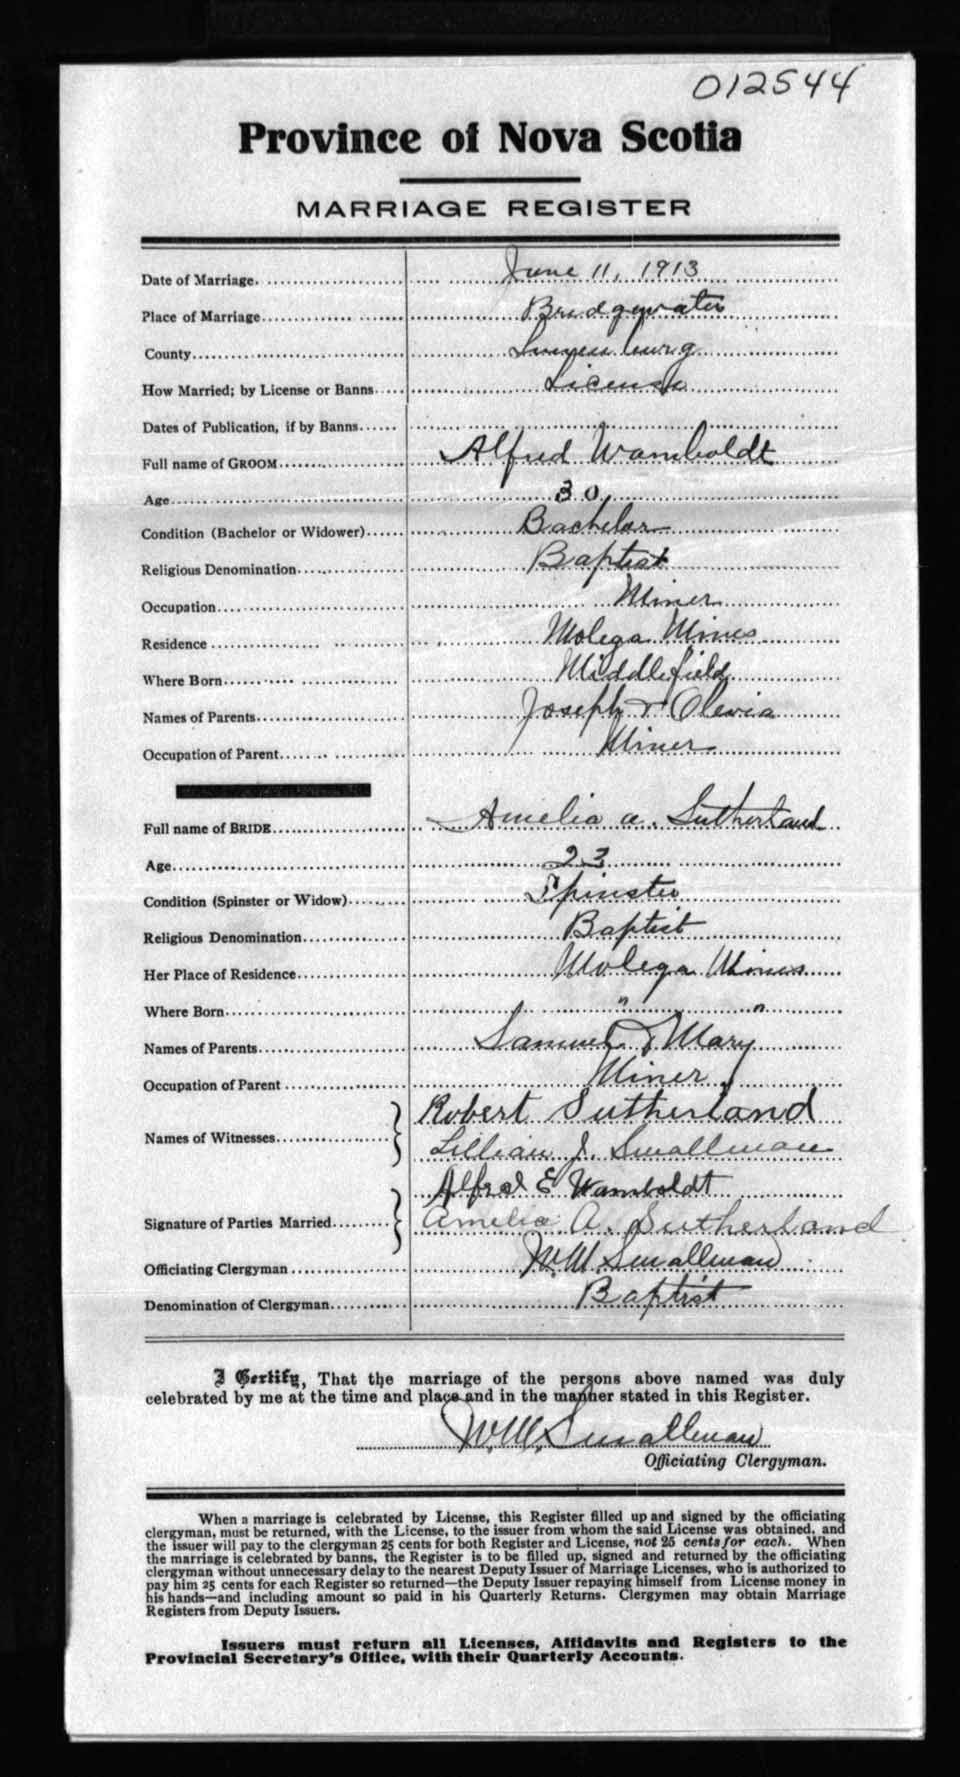 012544
Province of Nova Scotia
MARRIAGE REGISTER
Date of Marriage. June 11, 1913
Place of Marriage Bridgewater
County Lunenburg
How Married; by License or Banns License
Dates of Publication, if by Banns
Full name of GROOM Alfred Wamboldt
Age 30
Condition (Bachelor or Widower) Bachelor
Religious Denomination Baptist
Occupation Miner
Residence Molega Mines
Where Born Middlefield
Names of Parents Joseph & Olevia
Occupation of Parent Miner
Full name of BRIDE Amelia A. Sutherland
Age 23
Condition (Spinster or Widow) Spinster
Religious Denomination Baptist
Her Place of Residence Molega Mines
Where Born " "
Names of Parents Samuel & Mary
Occupation of Parent Miner
Names of Witnesses Robert Sutherland
Lillian J. Smallman
Signature of Parties Married Alfred E Wamboldt
Amelia A. Sutherland
Officiating Clergyman W.M. Smallman
Denomination of Clergyman Baptist
I Certify, That the marriage of the persons above named was duly
celebrated by me at the time and place and in the manner stated in this Register.
W.M. Smallman
Officiating Clergyman.
When a marriage is celebrated by License, this Register filled up and signed by the officiating
clergyman, must be returned, with the License, to the issuer from whom the said License was obtained, and
the issuer will pay to the clergyman 25 cents for both Register and License, not 25 cents for each. When
the marriage is celebrated by banns, the Register is to be filled up, signed and returned by the officiating
clergyman without unnecessary delay to the nearest Deputy Issuer of Marriage Licenses, who is authorized to
pay him 25 cents for each Register so returned—the Deputy Issuer repaying himself from License money in
his hands—and including amount so paid in his Quarterly Returns. Clergymen may obtain Marriage
Registers from Deputy Issuers.
Issuers must return all Licenses, Affidavits and Registers to the
Provincial Secretary's Office, with their Quarterly Accounts.